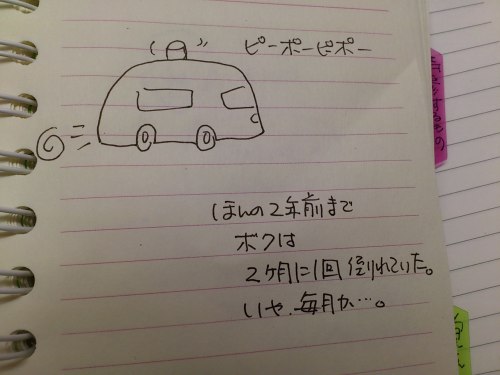 ピーポーピーポー
ほんの2年前まで
ボクは
2ヶ月に1回倒れていた。
いや、毎月か…。